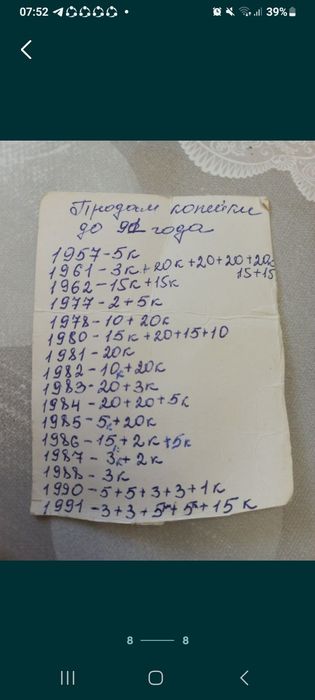 07:52
39%
Продам копейки
до 91 года
1957-5к
1961-3к+20к+20+20+20к
15+15
1962-15к+15к
1977-2+5к
1978-10+20к
1980-15к+20+15+10
1981-20к
1982-10к+20к
1983-20+3к
1984-20+20+5к
1985-5к+20к
1986-15+2к+5к
1987-3к+2к
1988-3к
1990-5+5+3+3+1к
1991-3+3+5к+5к+15к
8 8